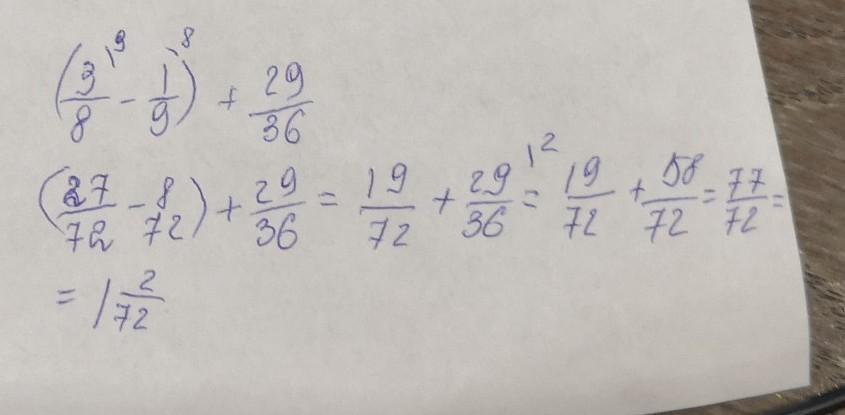 (3/8 ⁹ - 1/9 ⁸) + 29/36
(27/72 - 8/72) + 29/36 = 19/72 + 29/36 ² = 19/72 + 58/72 = 77/72 =
= 1 2/72